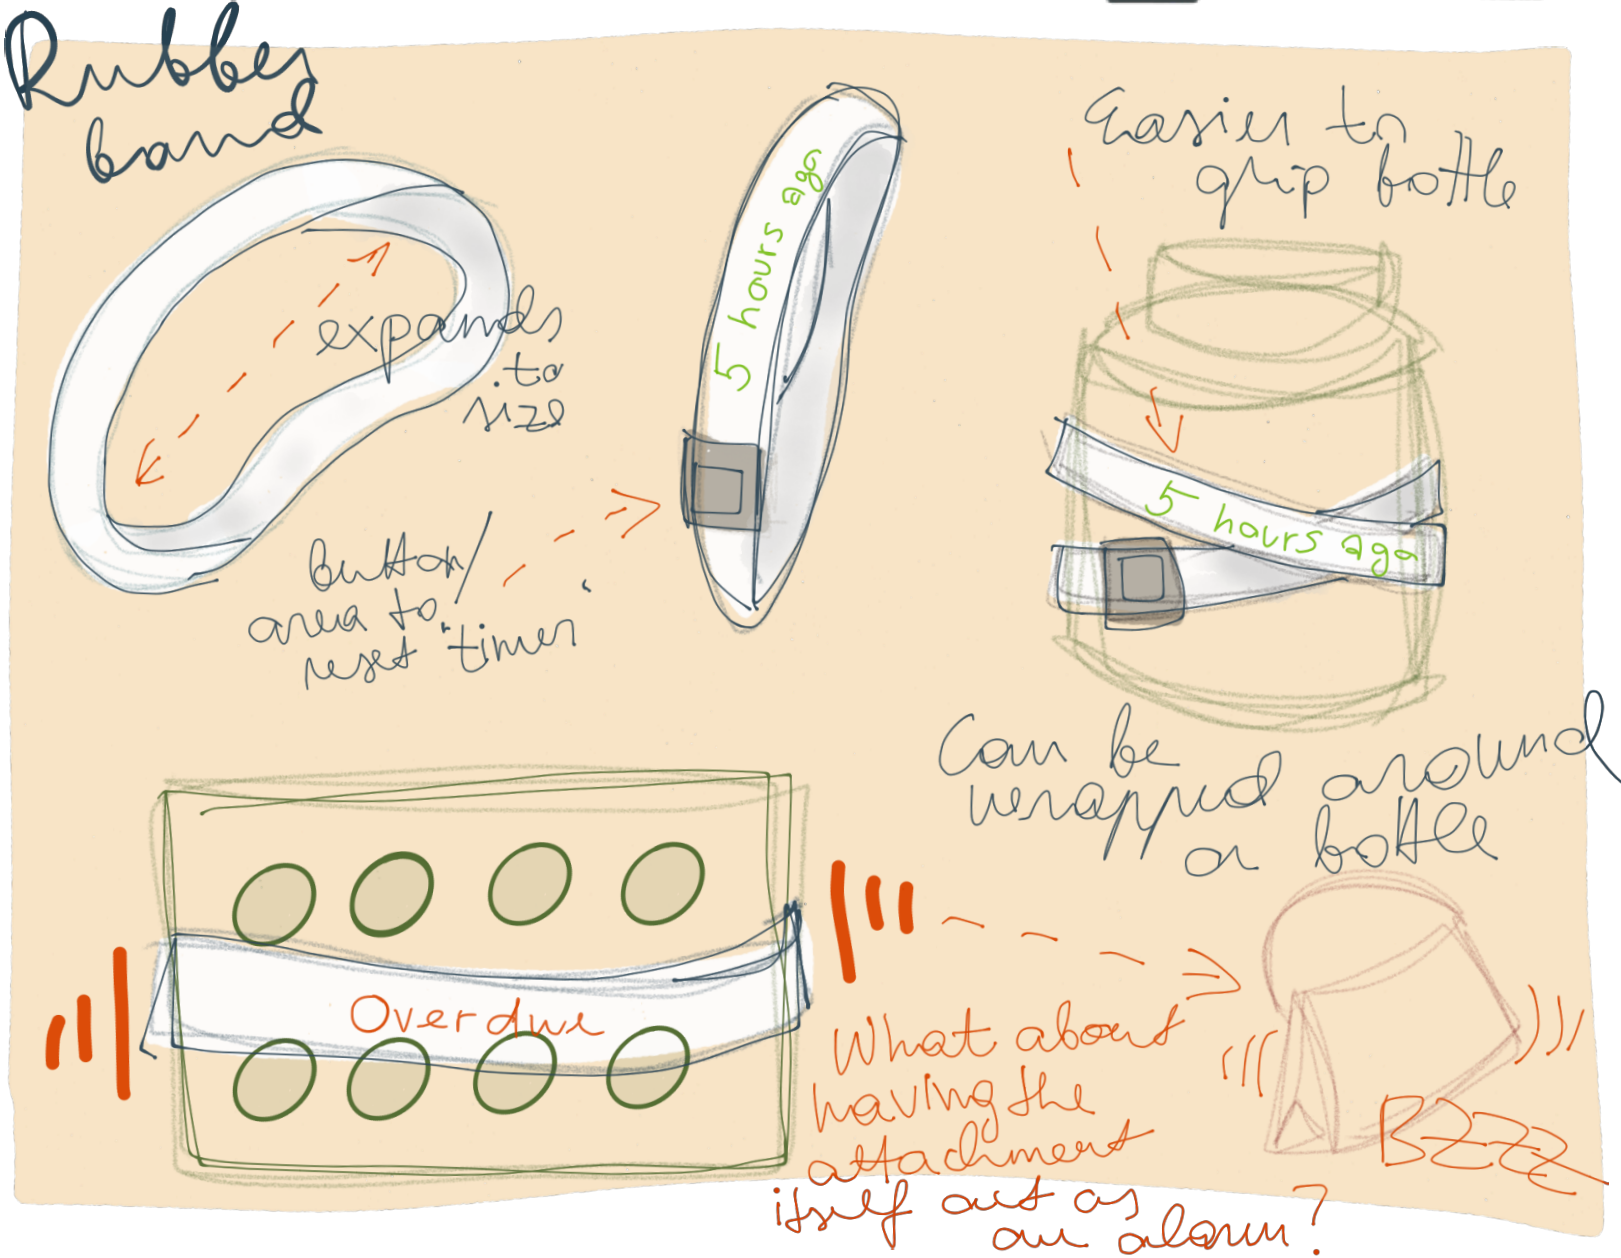 Rubber
band
expands
to
size
5 hours ago
Easier to
grip bottle
button/
area to
reset timer
5 hours ago
Can be
wrapped around
a bottle
Overdue
What about
having the
attachment
itself act as
an alarm?
BZZZ